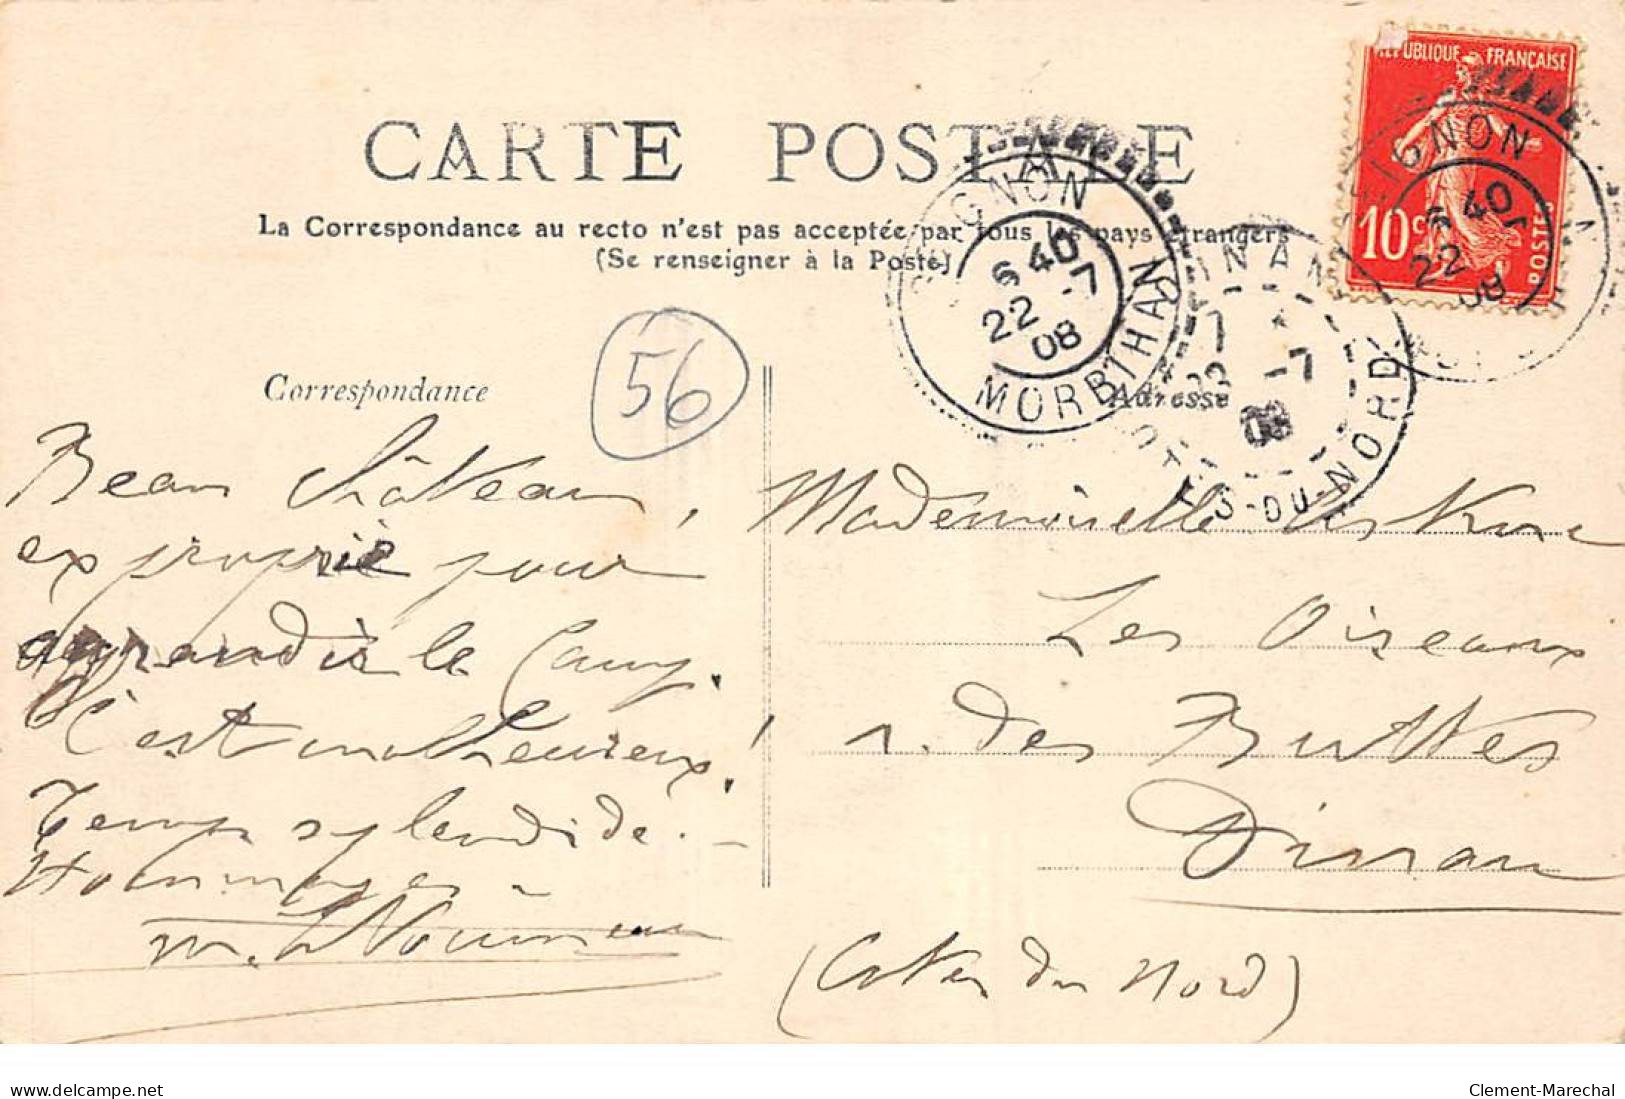 RÉPUBLIQUE FRANÇAISE
10c
POSTES
CARTE POSTALE
La Correspondance au recto n'est pas acceptée par tous les pays étrangers
(Se renseigner à la Poste)
6 40
22 -7
08
MORBIHAN
6 40
22
08
DINAN
7
-7
08
CÔTES-DU-NORD
56
Correspondance
Adresse
Beau Château,
exproprié pour
agrandir le Camp.
C'est malheureux!
Temps splendide. –
Hommages –
Mademoiselle
Les Oiseaux
r. des Buttes
Dinan
(Côtes du Nord)
delcampe.net
Clement-Marechal